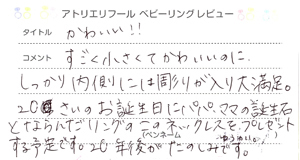 アトリエリフール ベビーリング レビュー
タイトル かわいい!!
コメント すごく小さくてかわいいのに、
しっかり内側には周りが入り大満足。
20さいのお誕生日にパパ、ママの誕生石
とならんだリングのこのネックレスをプレゼント
する予定です。20年後がたのしみです。
(ペンネーム